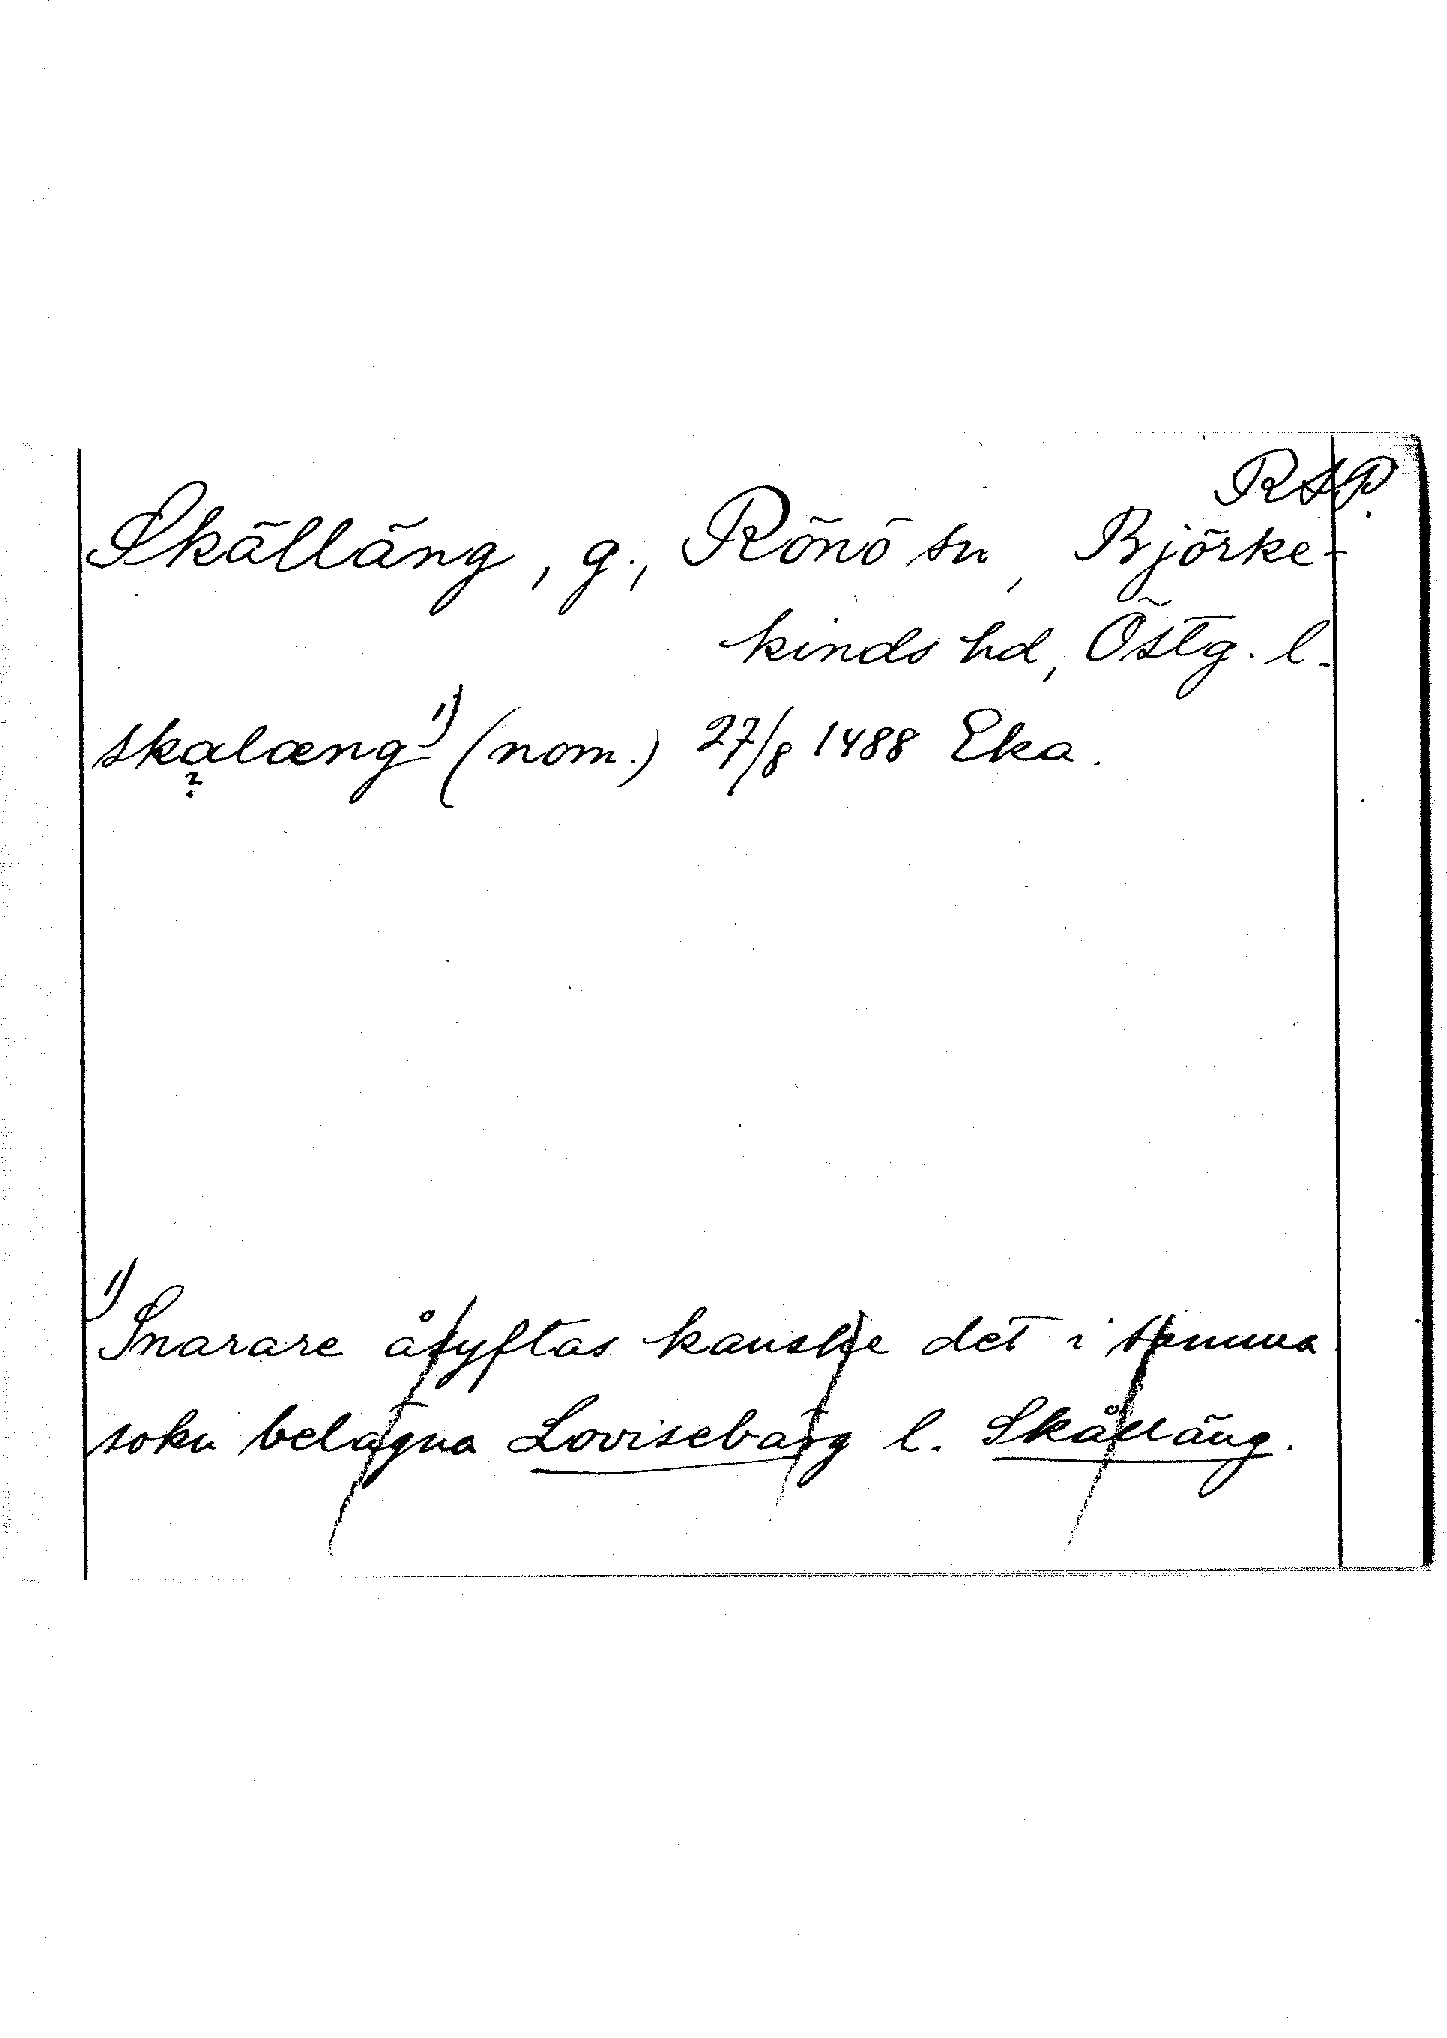 RAP.
Skälläng, g., Rönö sn, Björke-
kinds hd, Östg. l.
skalæng 1) (nom.) 27/8 1488 Eka.
?
1) Snarare åsyftas kanske det i samma
sokn belägna Loviseberg l. Skålläng.